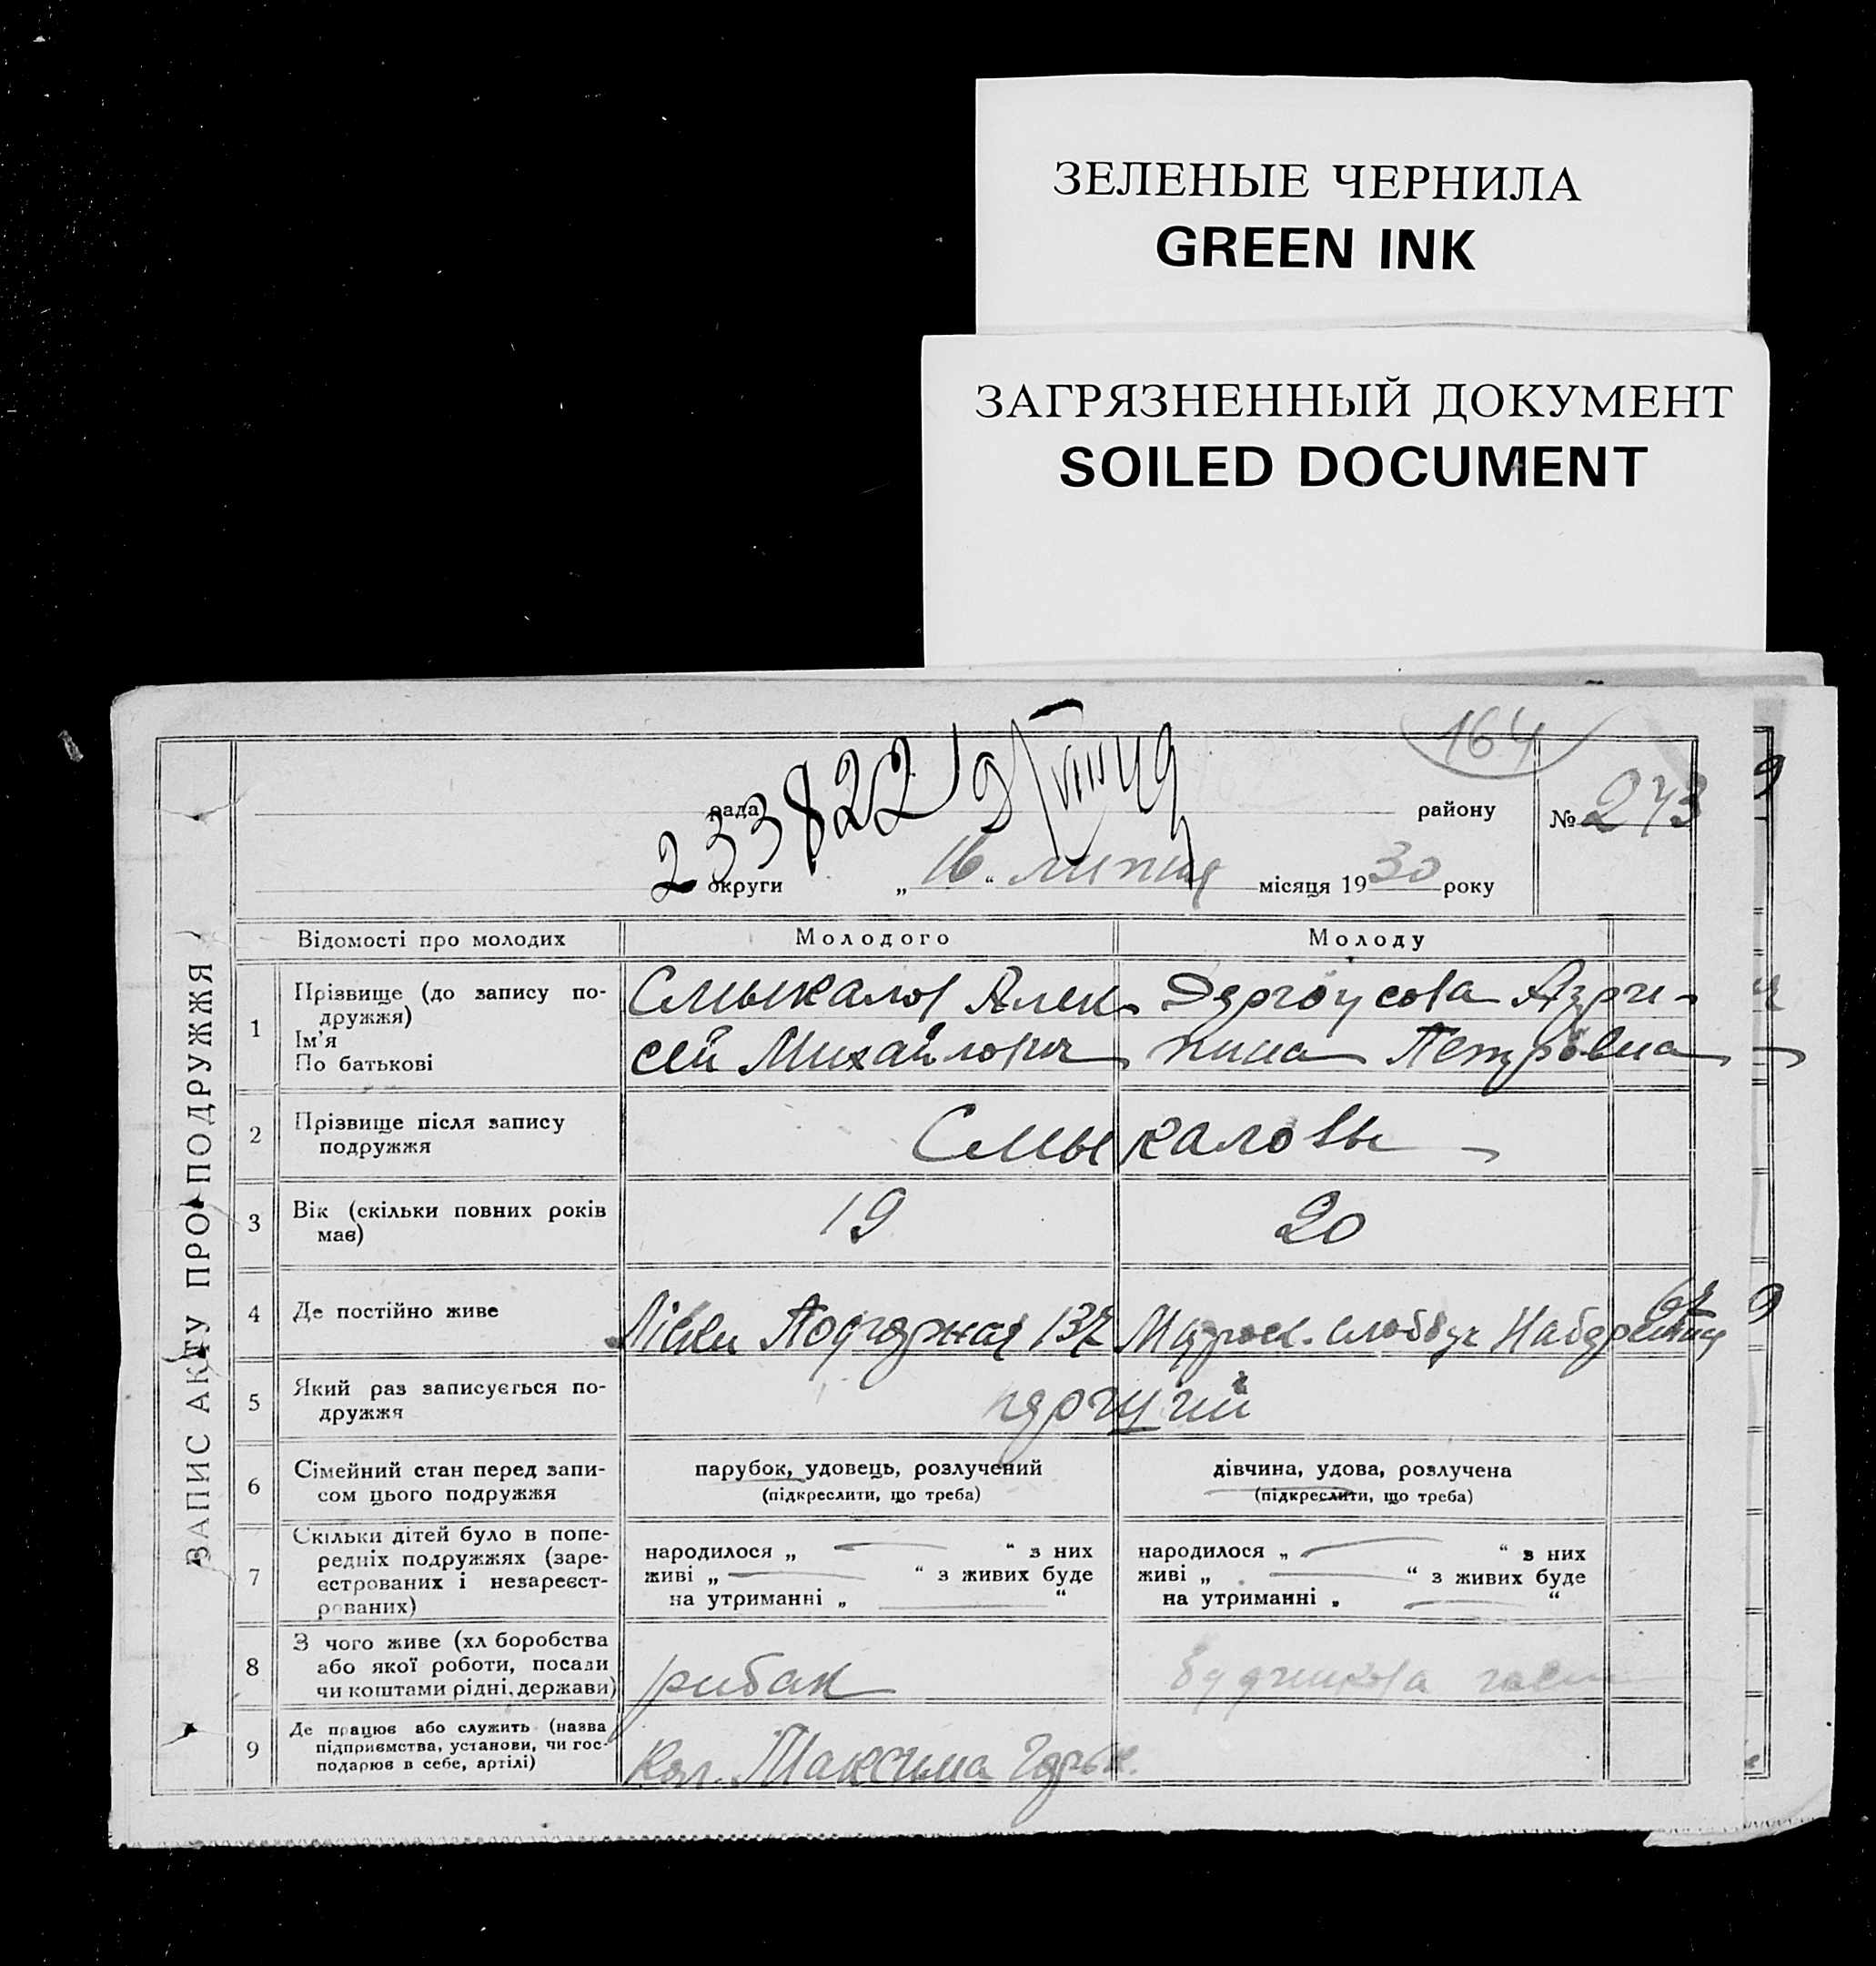 ЗЕЛЕНЫЕ ЧЕРНИЛА
GREEN INK
ЗАГРЯЗНЕННЫЙ ДОКУМЕНТ
SOILED DOCUMENT
164
рада району № 243
233822
округи „16“ липня місяця 1930 року
ЗАПИС АКТУ ПРО ПОДРУЖЖЯ
Відомості про молодих Молодого Молоду
1 Прізвище (до запису по-
дружжя)
Ім'я
По батькові
Смыкалов Алек-
сей Михайлович
Агри-
пина Петровна
2 Прізвище після запису
подружжя
Смыкаловы
3 Вік (скільки повних років
має)
19 20
4 Де постійно живе
137
слободк
5 Який раз записується по-
дружжя
6 Сімейний стан перед запи-
сом цього подружжя
парубок, удовець, розлучений
(підкреслити, що треба)
дівчина, удова, розлучена
(підкреслити, що треба)
7 Скільки дітей було в попе-
редніх подружжях (заре-
єстрованих і незареєст-
рованих)
народилося „ “ з них
живі „ “ з живих буде
на утриманні „ “
народилося „ “ з них
живі „ “ з живих буде
на утриманні „ “
8 З чого живе (хл боробства
або якої роботи, посади
чи коштами рідні, держави)
рибак
9 Де працює або служить (назва
підприємства, установи, чи гос-
подарює в себе, артілі)
Максима Горьк.